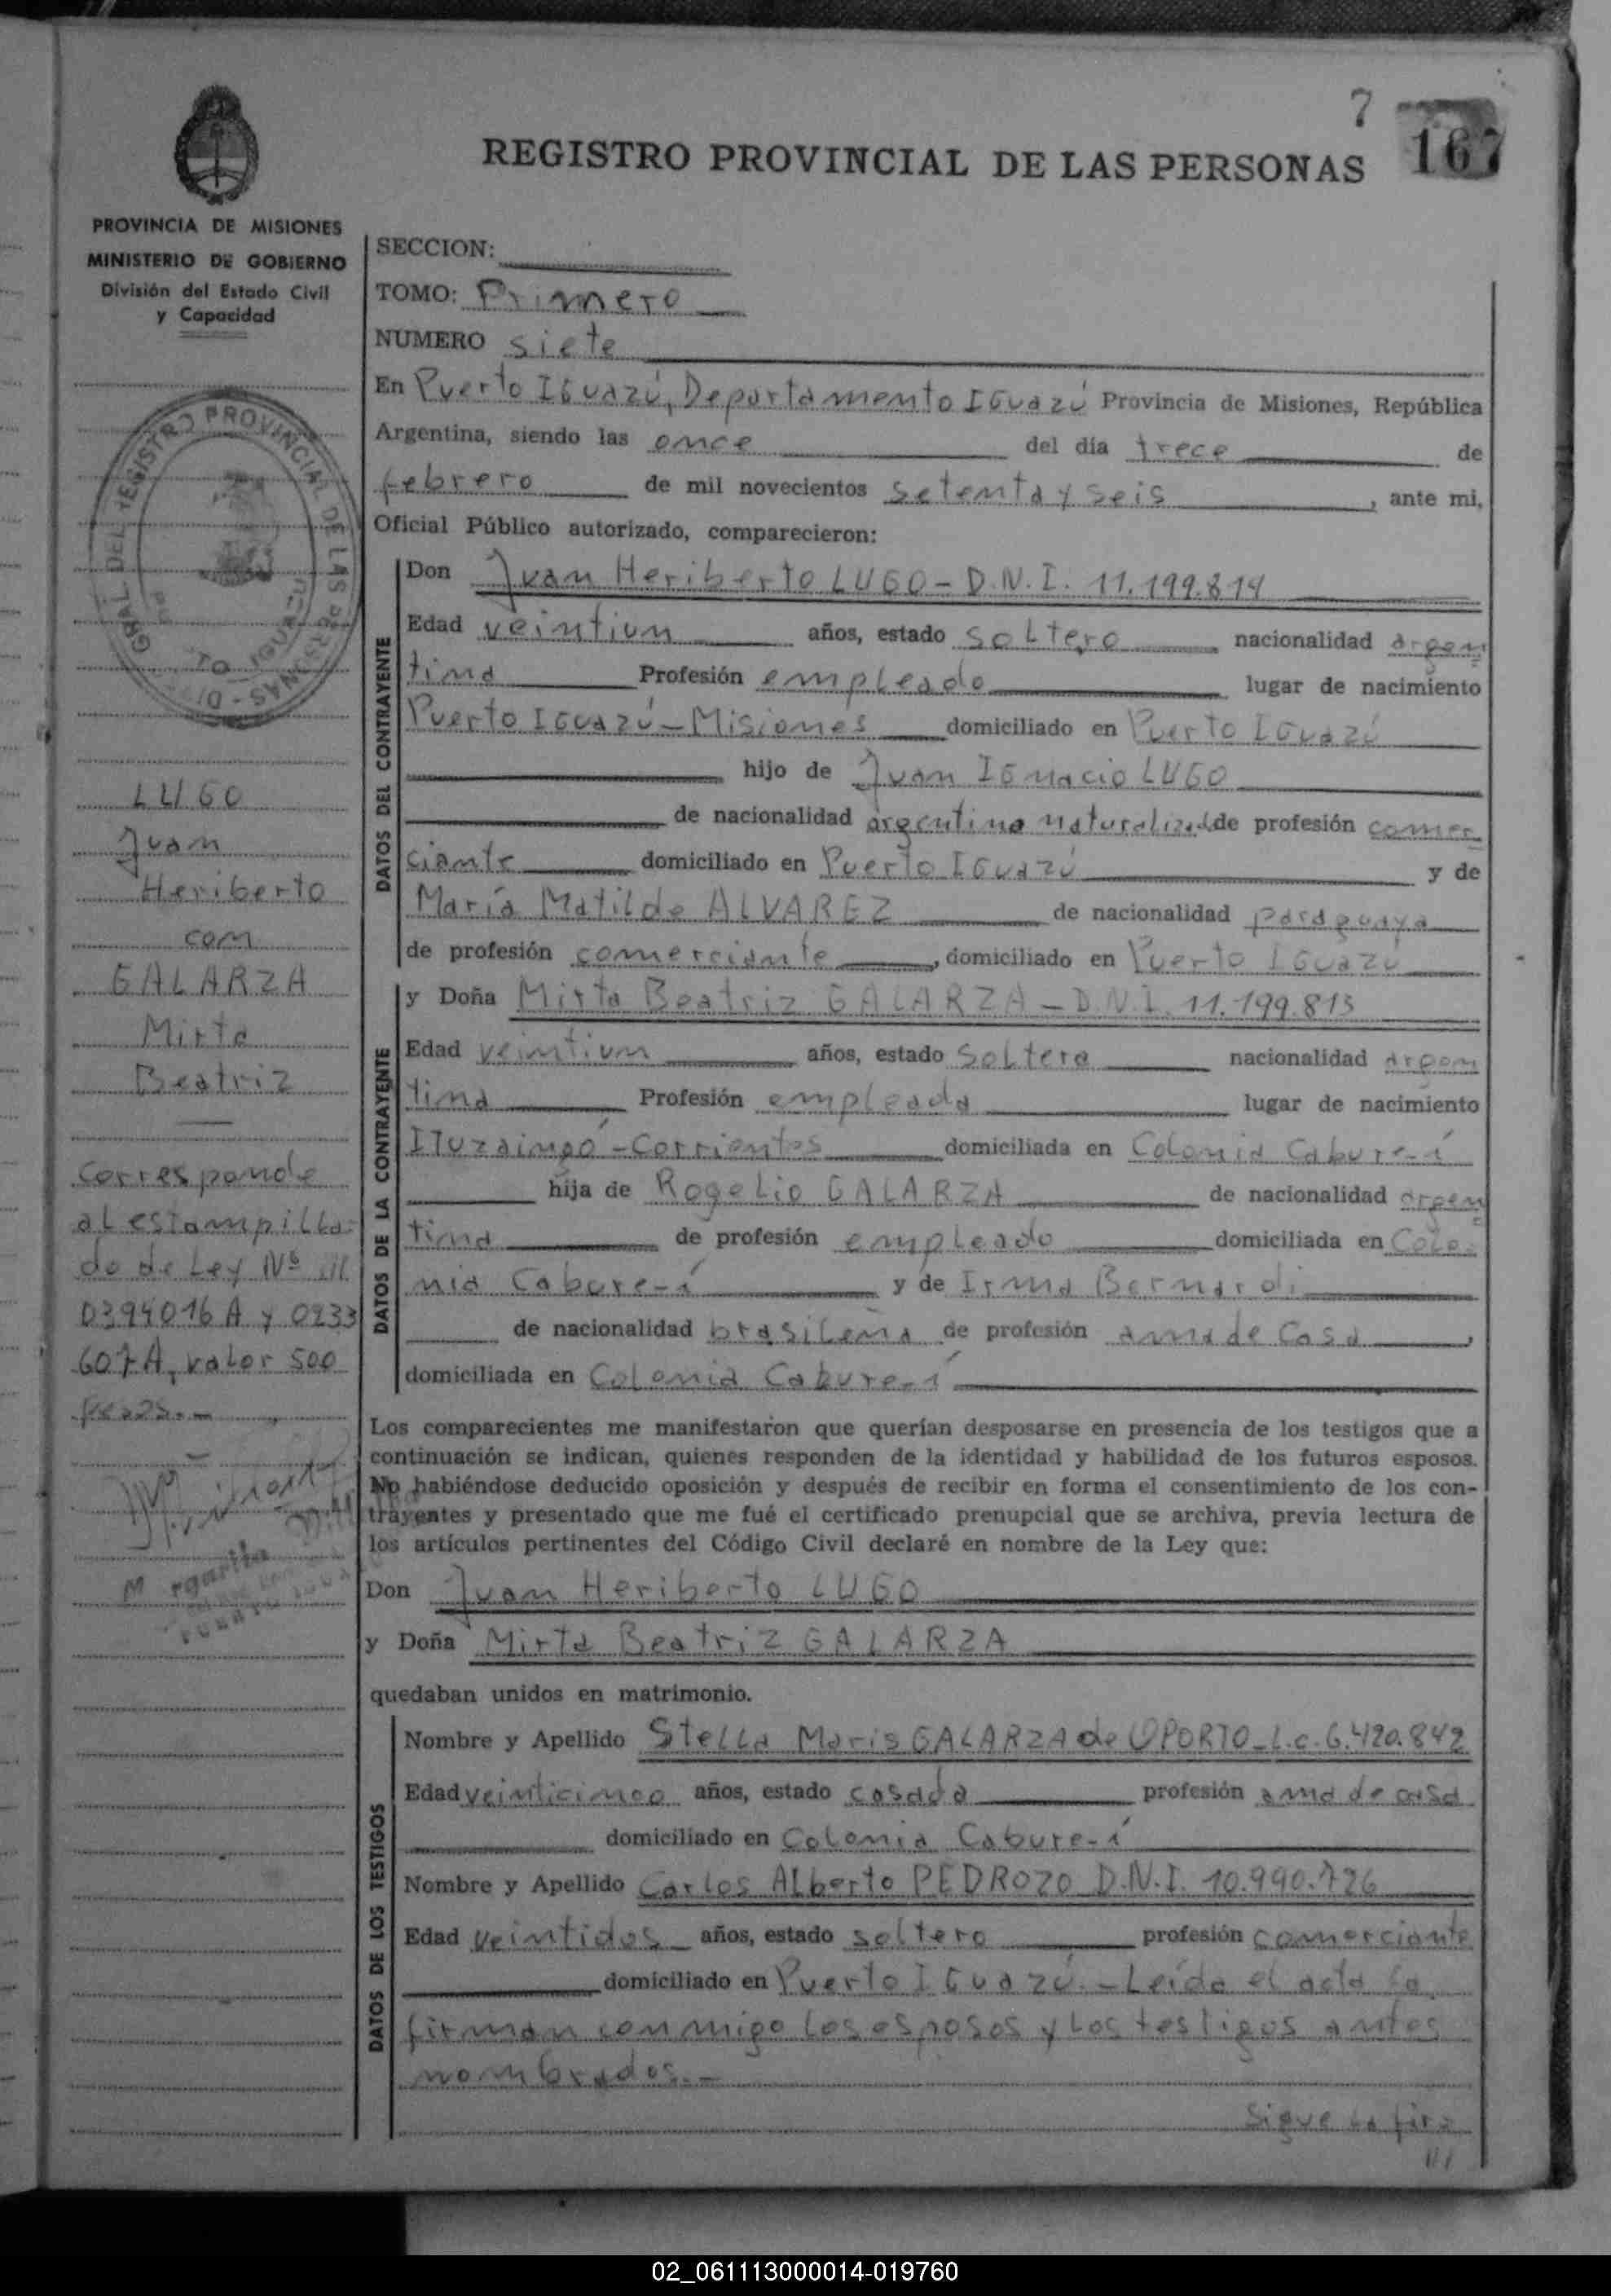 7
167
REGISTRO PROVINCIAL DE LAS PERSONAS
PROVINCIA DE MISIONES
MINISTERIO DE GOBIERNO
División del Estado Civil
y Capacidad
LUGO
Juan
Heriberto
con
GALARZA
Mirta
Beatriz
Corresponde
al estampilla-
do de Ley Nº
0394016 A y 0233
607 A, valor 500
pesos.-
SECCION:
TOMO: Primero
NUMERO siete
En Puerto Iguazú, Departamento Iguazú Provincia de Misiones, República
Argentina, siendo las once del día trece de
febrero de mil novecientos setenta y seis, ante mi,
Oficial Público autorizado, comparecieron:
DATOS DEL CONTRAYENTE
Don Juan Heriberto LUGO - D.N.I. 11.199.814
Edad veintiun años, estado soltero nacionalidad argen
tina Profesión empleado lugar de nacimiento
Puerto Iguazú - Misiones domiciliado en Puerto Iguazú
hijo de Juan Ignacio LUGO
de nacionalidad argentino naturalizado de profesión comer
ciante domiciliado en Puerto Iguazú y de
María Matilde ALVAREZ de nacionalidad paraguaya
de profesión comerciante, domiciliado en Puerto Iguazú
DATOS DE LA CONTRAYENTE
y Doña Mirta Beatriz GALARZA - D.N.I. 11.199.813
Edad veintiun años, estado soltera nacionalidad argen
tina Profesión empleada lugar de nacimiento
Ituzaingó - Corrientes domiciliada en Colonia Cabure-í
hija de Rogelio GALARZA de nacionalidad argen
tina de profesión empleado domiciliada en Colo-
nia Cabure-í y de Irma Bernardi
de nacionalidad brasileña de profesión ama de casa,
domiciliada en Colonia Cabure-í
Los comparecientes me manifestaron que querían desposarse en presencia de los testigos que a
continuación se indican, quienes responden de la identidad y habilidad de los futuros esposos.
No habiéndose deducido oposición y después de recibir en forma el consentimiento de los con-
trayentes y presentado que me fué el certificado prenupcial que se archiva, previa lectura de
los artículos pertinentes del Código Civil declaré en nombre de la Ley que:
Don Juan Heriberto LUGO
y Doña Mirta Beatriz GALARZA
quedaban unidos en matrimonio.
DATOS DE LOS TESTIGOS
Nombre y Apellido Stella Maris GALARZA de OPORTO - L.C. 6.420.842
Edad veinticinco años, estado casada profesión ama de casa
domiciliado en Colonia Cabure-í
Nombre y Apellido Carlos Alberto PEDROZO D.N.I. 10.990.726
Edad veintidos años, estado soltero profesión comerciante
domiciliado en Puerto Iguazú.- Leída el acta la
firman conmigo los esposos y los testigos antes
nombrados.-
Sigue la fir-
///
02_061113000014-019760